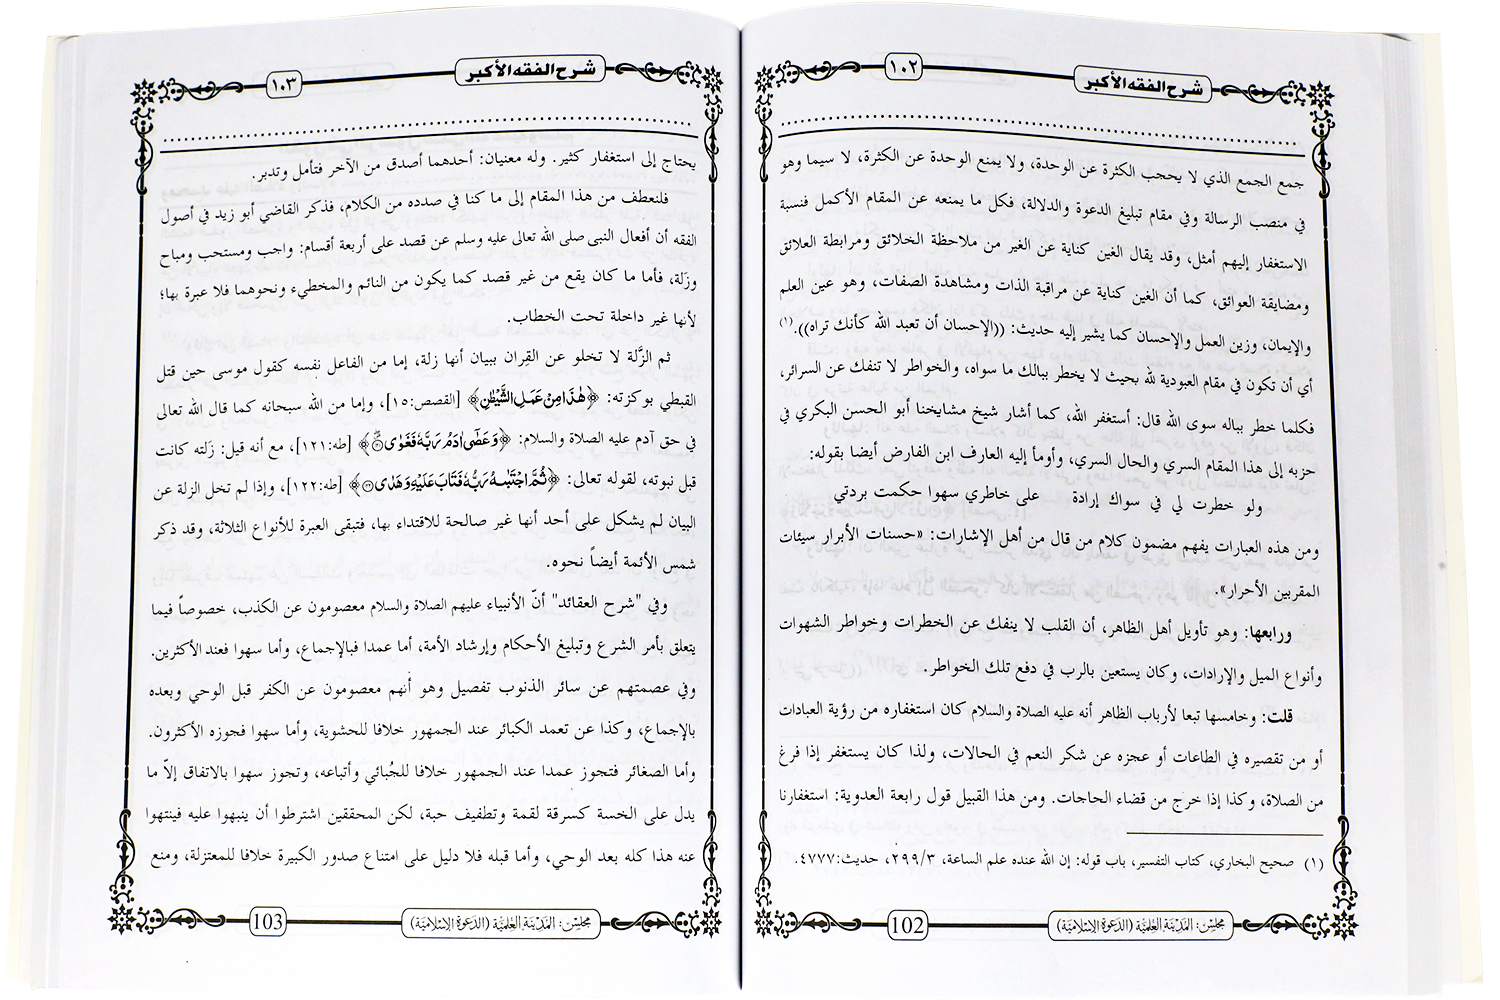 شرح الفقه الأكبر
١٠٢
جمع الجمع الذي لا يحجب الكثرة عن الوحدة، ولا يمنع الوحدة عن الكثرة، لا سيما وهو
في منصب الرسالة وفي مقام تبليغ الدعوة والدلالة، فكل ما يمنعه عن المقام الأكمل فنسبة
الاستغفار إليهم أمثل، وقد يقال الغين كناية عن الغير من ملاحظة الخلائق ومرابطة العلائق
ومضايقة العوائق، كما أن الغين كناية عن مراقبة الذات ومشاهدة الصفات، وهو عين العلم
والإيمان، وزين العمل والإحسان كما يشير إليه حديث: ((الإحسان أن تعبد الله كأنك تراه)).(١)
أي أن تكون في مقام العبودية لله بحيث لا يخطر ببالك ما سواه، والخواطر لا تنفك عن السرائر،
فكلما خطر بباله سوى الله قال: أستغفر الله، كما أشار شيخ مشايخنا أبو الحسن البكري في
حزبه إلى هذا المقام السري والحال السري، وأومأ إليه العارف ابن الفارض أيضا بقوله:
ولو خطرت لي في سواك إرادة على خاطري سهوا حكمت بردتي
ومن هذه العبارات يفهم مضمون كلام من قال من أهل الإشارات: «حسنات الأبرار سيئات
المقربين الأحرار».
ورابعها: وهو تأويل أهل الظاهر، أن القلب لا ينفك عن الخطرات وخواطر الشهوات
وأنواع الميل والإرادات، وكان يستعين بالرب في دفع تلك الخواطر.
قلت: وخامسها تبعا لأرباب الظاهر أنه عليه الصلاة والسلام كان استغفاره من رؤية العبادات
أو من تقصيره في الطاعات أو عجزه عن شكر النعم في الحالات، ولذا كان يستغفر إذا فرغ
من الصلاة، وكذا إذا خرج من قضاء الحاجات. ومن هذا القبيل قول رابعة العدوية: استغفارنا
(١) صحيح البخاري، كتاب التفسير، باب قوله: إن الله عنده علم الساعة، ٢٩٩/٣، حديث:٤٧٧٧.
مجلس: المدينة العلمية (الدعوة الإسلامية)
102
شرح الفقه الأكبر
١٠٣
يحتاج إلى استغفار كثير. وله معنيان: أحدهما أصدق من الآخر فتأمل وتدبر.
فلنعطف من هذا المقام إلى ما كنا في صدده من الكلام، فذكر القاضي أبو زيد في أصول
الفقه أن أفعال النبي صلى الله تعالى عليه وسلم عن قصد على أربعة أقسام: واجب ومستحب ومباح
وزلة، فأما ما كان يقع من غير قصد كما يكون من النائم والمخطيء ونحوهما فلا عبرة بها؛
لأنها غير داخلة تحت الخطاب.
ثم الزَّلة لا تخلو عن القِران ببيان أنها زلة، إما من الفاعل نفسه كقول موسى حين قتل
القبطي بوكزته: ﴿هٰذَا مِنْ عَمَلِ الشَّيْطٰنِ﴾ [القصص:١٥]، وإما من الله سبحانه كما قال الله تعالى
في حق آدم عليه الصلاة والسلام: ﴿وَعَصٰۤى اٰدَمُ رَبَّهٗ فَغَوٰى﴾ [طه:١٢١]، مع أنه قيل: زَلته كانت
قبل نبوته، لقوله تعالى: ﴿ثُمَّ اجْتَبٰىهُ رَبُّهٗ فَتَابَ عَلَیْهِ وَهَدٰى﴾ [طه:١٢٢]، وإذا لم تخل الزلة عن
البيان لم يشكل على أحد أنها غير صالحة للاقتداء بها، فتبقى العبرة للأنواع الثلاثة، وقد ذكر
شمس الأئمة أيضاً نحوه.
وفي "شرح العقائد" أنّ الأنبياء عليهم الصلاة والسلام معصومون عن الكذب، خصوصاً فيما
يتعلق بأمر الشرع وتبليغ الأحكام وإرشاد الأمة، أما عمدا فبالإجماع، وأما سهوا فعند الأكثرين.
وفي عصمتهم عن سائر الذنوب تفصيل وهو أنهم معصومون عن الكفر قبل الوحي وبعده
بالإجماع، وكذا عن تعمد الكبائر عند الجمهور خلافا للحشوية، وأما سهوا فجوزه الأكثرون.
وأما الصغائر فتجوز عمدا عند الجمهور خلافا للجُبائي وأتباعه، وتجوز سهوا بالاتفاق إلاّ ما
يدل على الخسة كسرقة لقمة وتطفيف حبة، لكن المحققين اشترطوا أن ينبهوا عليه فينتهوا
عنه هذا كله بعد الوحي، وأما قبله فلا دليل على امتناع صدور الكبيرة خلافا للمعتزلة، ومنع
مجلس: المدينة العلمية (الدعوة الإسلامية)
103